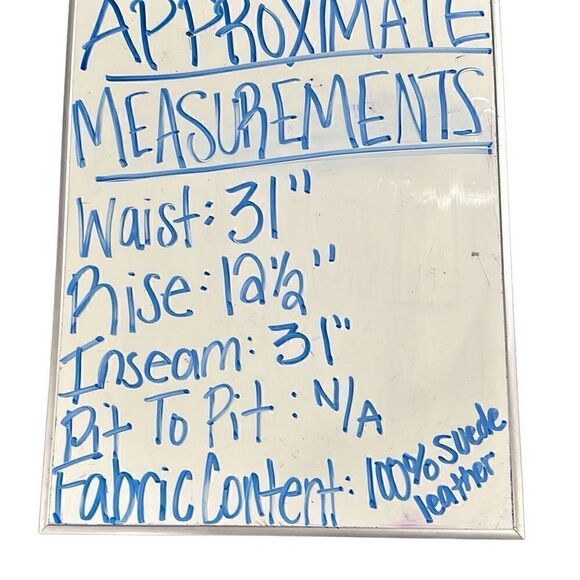 APPROXIMATE
MEASUREMENTS
Waist: 31"
Rise: 12½"
Inseam: 31"
Pit To Pit: N/A
Fabric Content: 100% suede
leather